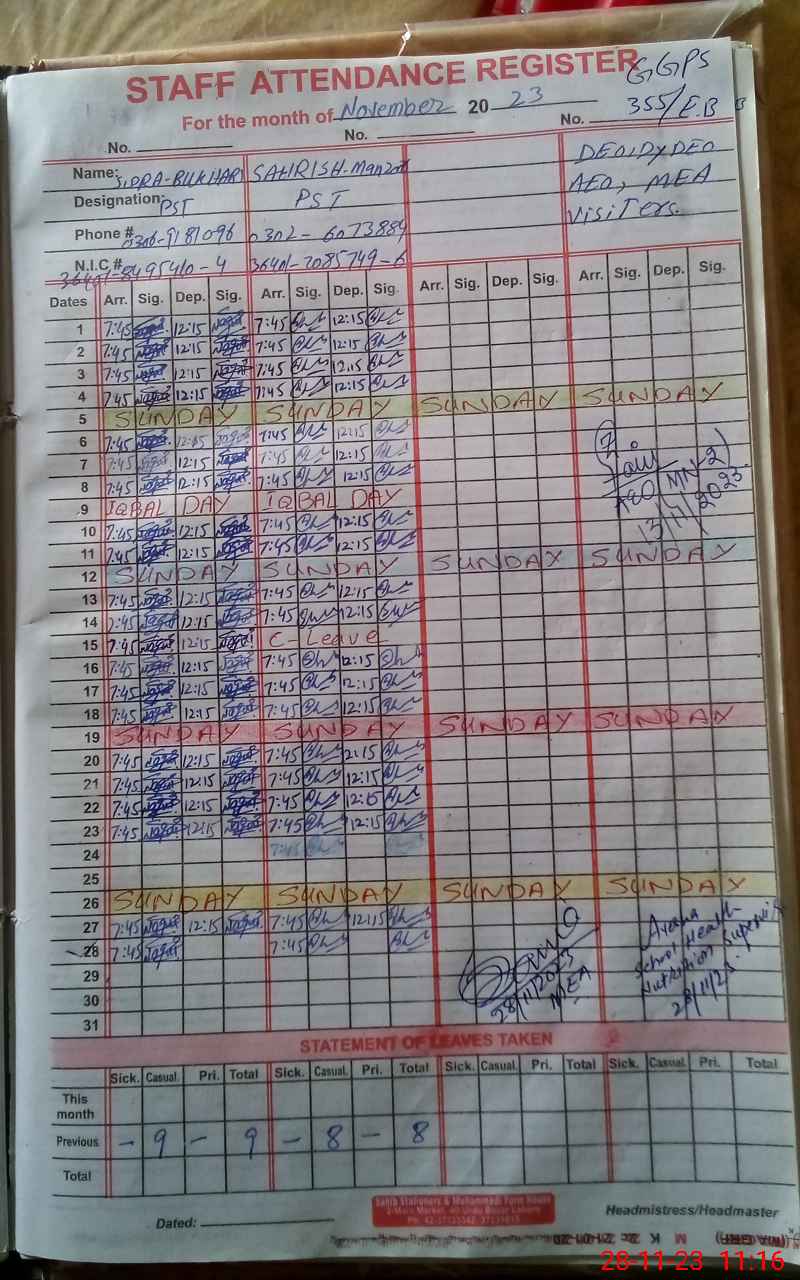 STAFF ATTENDANCE REGISTER GGPS
For the month of November 20 23 355/E.B
No. No. No.
Name: SIDRA-BUKHARI SAHRISH-Manzoor DEO, DyDEO
Designation: PST PST AEO, MEA
Phone # 0306-9181096 0302-6073889 Visiters.
N.I.C.# 36401-8495410-4 36401-7085749-6
Dates Arr. Sig. Dep. Sig. Arr. Sig. Dep. Sig. Arr. Sig. Dep. Sig. Arr. Sig. Dep. Sig.
1 7:45 12:15 7:45 12:15
2 7:45 12:15 7:45 12:15
3 7:45 12:15 7:45 12:15
4 7:45 12:15 7:45 12:15
5 SUNDAY SUNDAY SUNDAY SUNDAY
6 7:45 12:15 7:45 12:15
7 7:45 12:15 7:45 12:15
8 7:45 12:15 7:45 12:15
9 IQBAL DAY IQBAL DAY
10 7:45 12:15 7:45 12:15
11 7:45 12:15 7:45 12:15
AEO
13/11/2023
12 SUNDAY SUNDAY SUNDAY SUNDAY
13 7:45 12:15 7:45 12:15
14 7:45 12:15 7:45 12:15
15 7:45 12:15 C-Leave
16 7:45 12:15 7:45 12:15
17 7:45 12:15 7:45 12:15
18 7:45 12:15 7:45 12:15
19 SUNDAY SUNDAY SUNDAY SUNDAY
20 7:45 12:15 7:45 12:15
21 7:45 12:15 7:45 12:15
22 7:45 12:15 7:45 12:15
23 7:45 12:15 7:45 12:15
24 7:45
25
26 SUNDAY SUNDAY SUNDAY SUNDAY
27 7:45 12:15 7:45 12:15
28 7:45 7:45
29
30
31
28/11/2023
MEA
School Health
Nutrition Supervisor
28/11/23
STATEMENT OF LEAVES TAKEN
Sick. Casual. Pri. Total Sick. Casual. Pri. Total Sick. Casual. Pri. Total Sick. Casual. Pri. Total
This
month
Previous - 9 - 9 - 8 - 8
Total
Dated: Headmistress/Headmaster
28-11-23 11:16